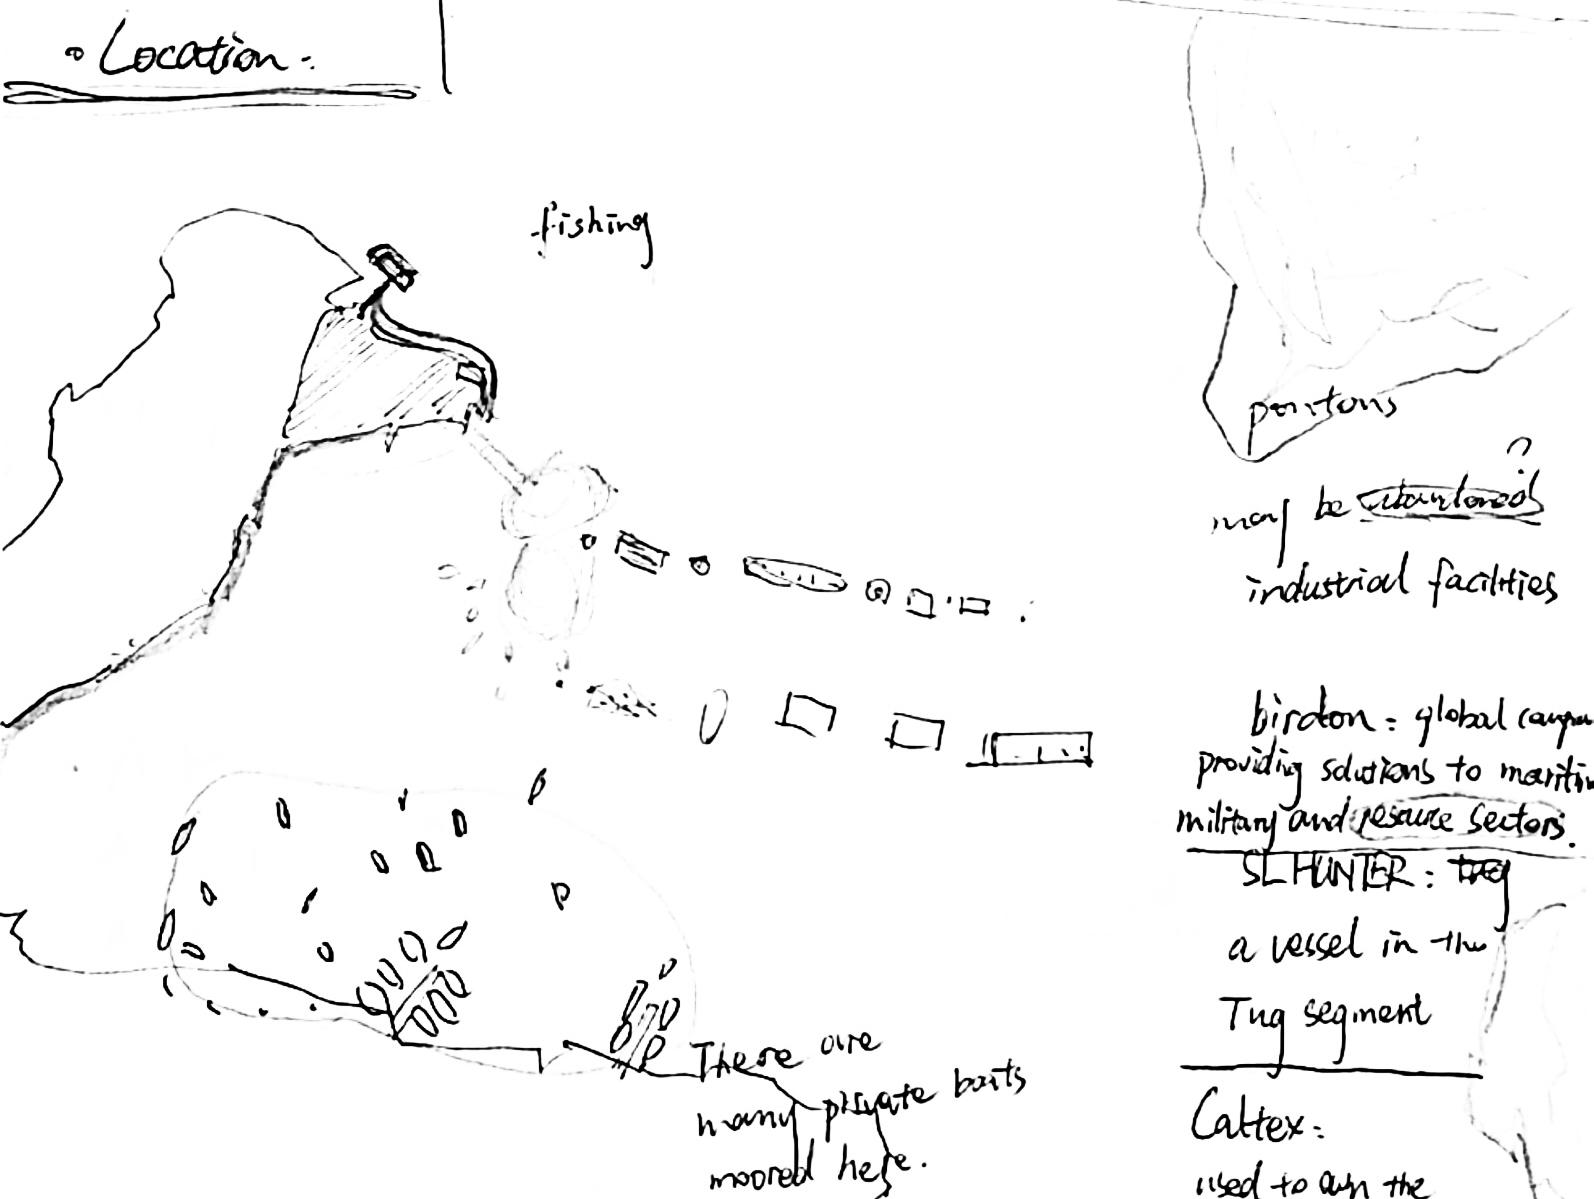 Location:
fishing
pontons
?
may be abandoned
industrial facilities
birdon: global
providing solutions to
military and resource sectors.
SL HUNTER: tug
a vessel in the
Tug segment
There are
many private boats
moored here.
Caltex:
used to own the